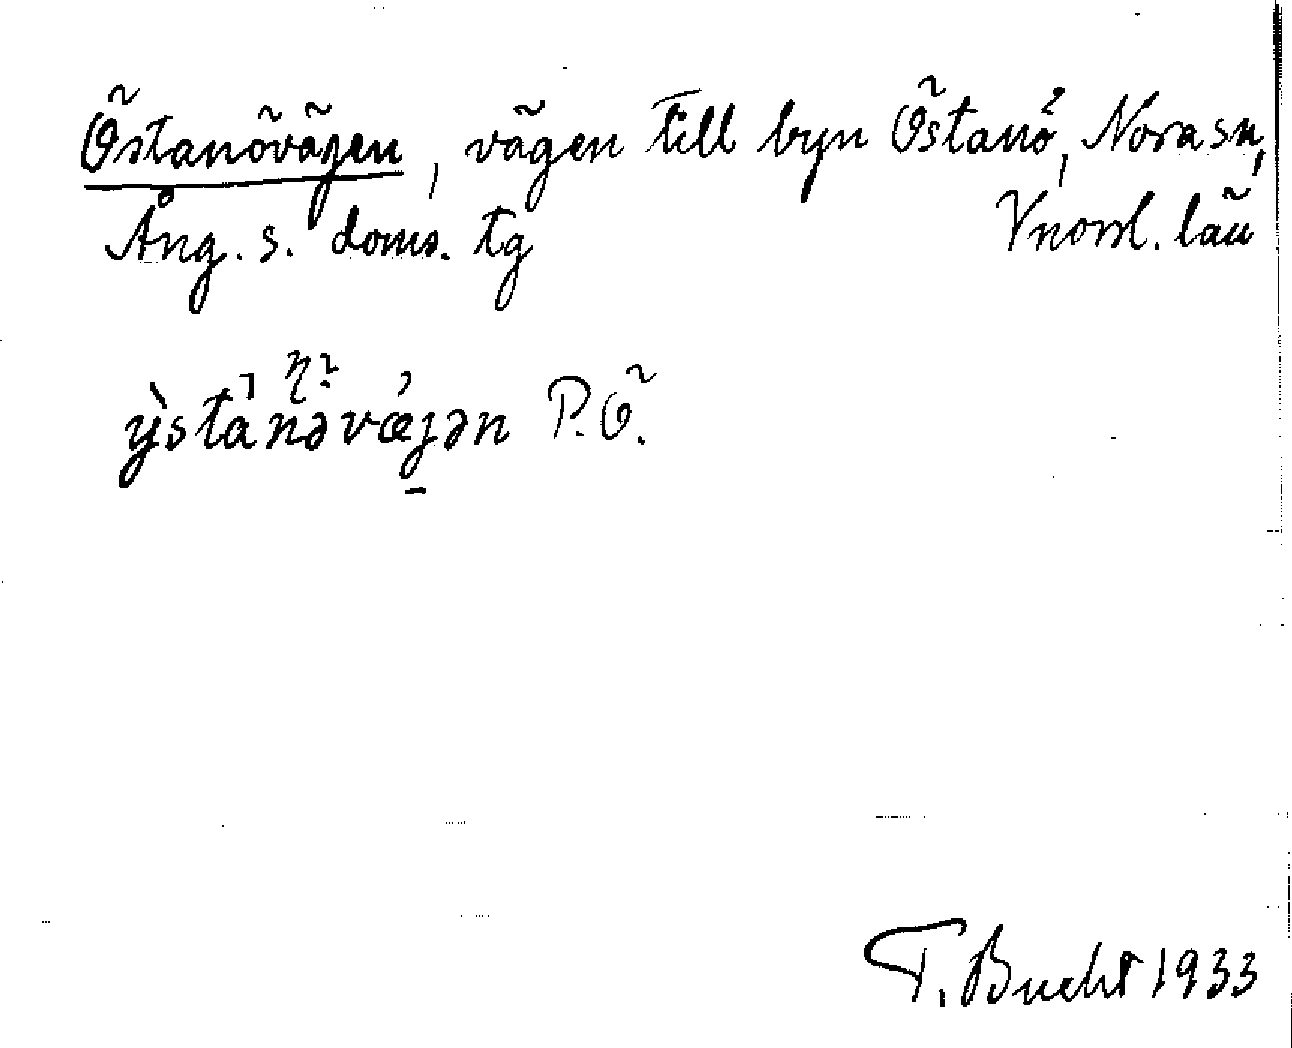 Östanövägen, vägen till byn Östanö, Nora sn,
Ång. s. doms. tg Vnorrl. län
P.Ö.
T. Bucht 1933